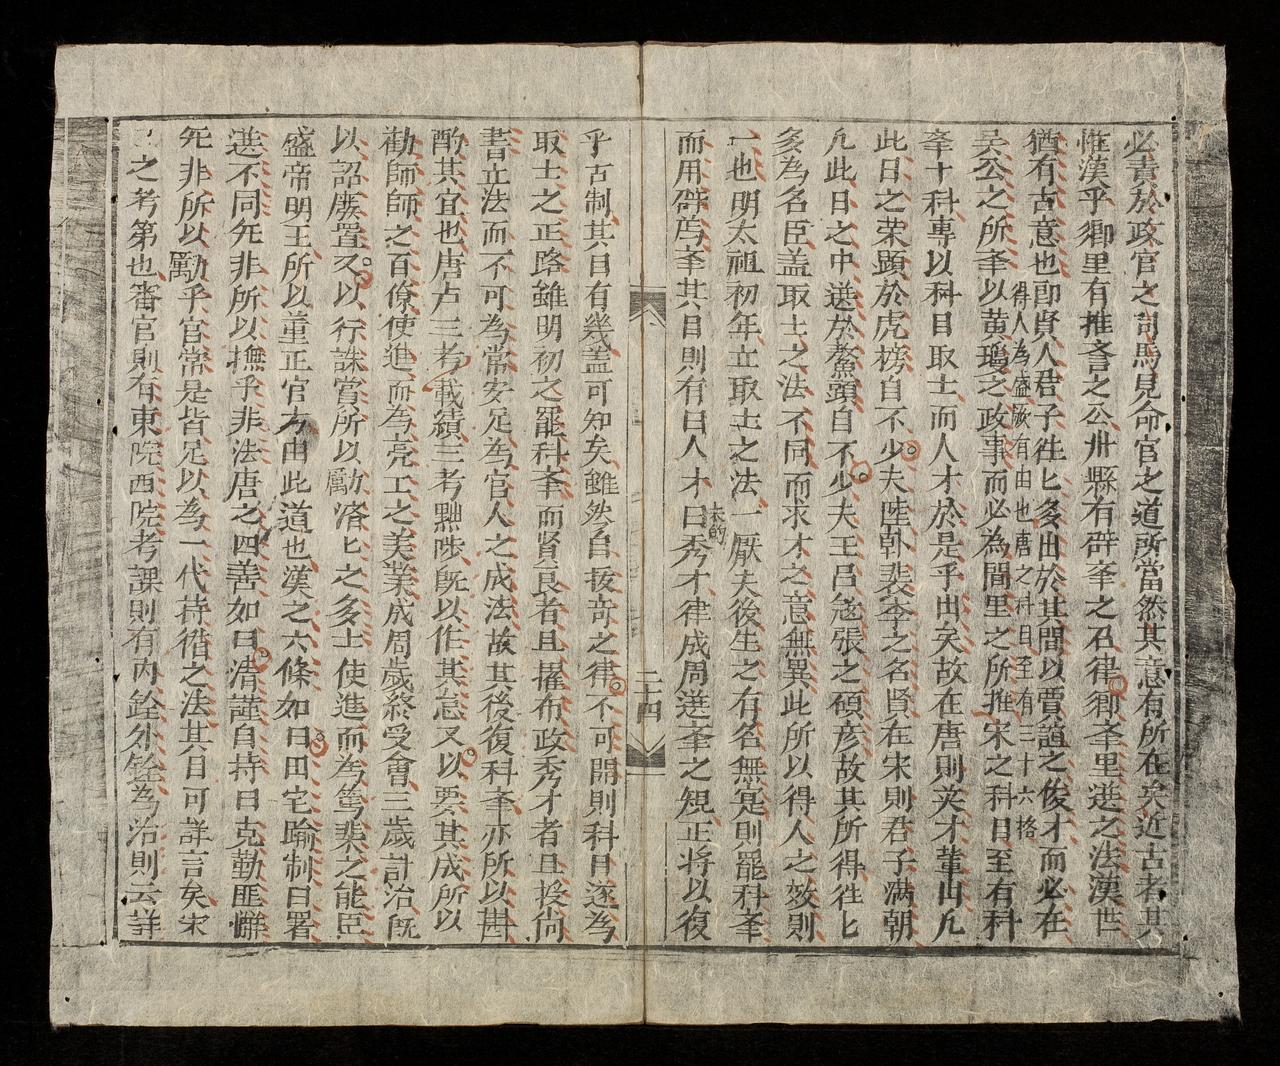 必責於政官之司馬見命官之道所當然其意有所在矣近古者其
惟漢乎鄉里有推??之公卅縣有辟峯之召律卿峯里逰之法漢世
猶有古意也即賢人君子徃匕多出於其間以賈誼之俊才而必在
得人為盛厥有由也唐之科目至有三十六格
吳公之所峯以黄瓊之政事而必為閭里之所推宋之科目至有科
峯十科專以科目取士而人才於是乎出矣故在唐則英才軰出凢
此日之荣顯於虎榜自不少夫陸???裴李之名賢在宋則君子满朝
凢此日之中逰於鰲頭自不少夫王吕寇張之碩彦故其所得徃匕
多為名臣盖取士之法不同而求才之意無異此所以得人之效則
一也明太祖初年立取士之法一厭夫後生之有名無寔則罷科峯
而用辟焉峯其目則有曰人才曰秀才律成周逰峯之規正将以復
未的
二十四
乎古制其目有幾盖可知矣雖然自抜竒之律不可開則科目遂為
取士之正路雖明初之罷科峯而賢良者且擢布政秀才者且授尚
書立法而不可為常安足為官人之成法故其後復科峯亦所以斟
酌其宜也唐卢三考載績三考黜陟既以作其怠又以要其成所以
勸師師之百僚使進而為亮工之美業成周歲終受會三歲計治既
以詔廢置又以行誅賞所以勵濟匕之多士使進而為篤棐之能臣
盛帝明王所以董正官方由此道也漢之六條如曰田宅踰制曰署
逰不同死非所以撫乎非法唐之四善如曰清謹自持曰克勤匪懈
死非所以勵乎官常是皆足以為一代持循之法其目可詳言矣宋
之考第也審官則有東院西院考課則有内銓外銓為治則云詳